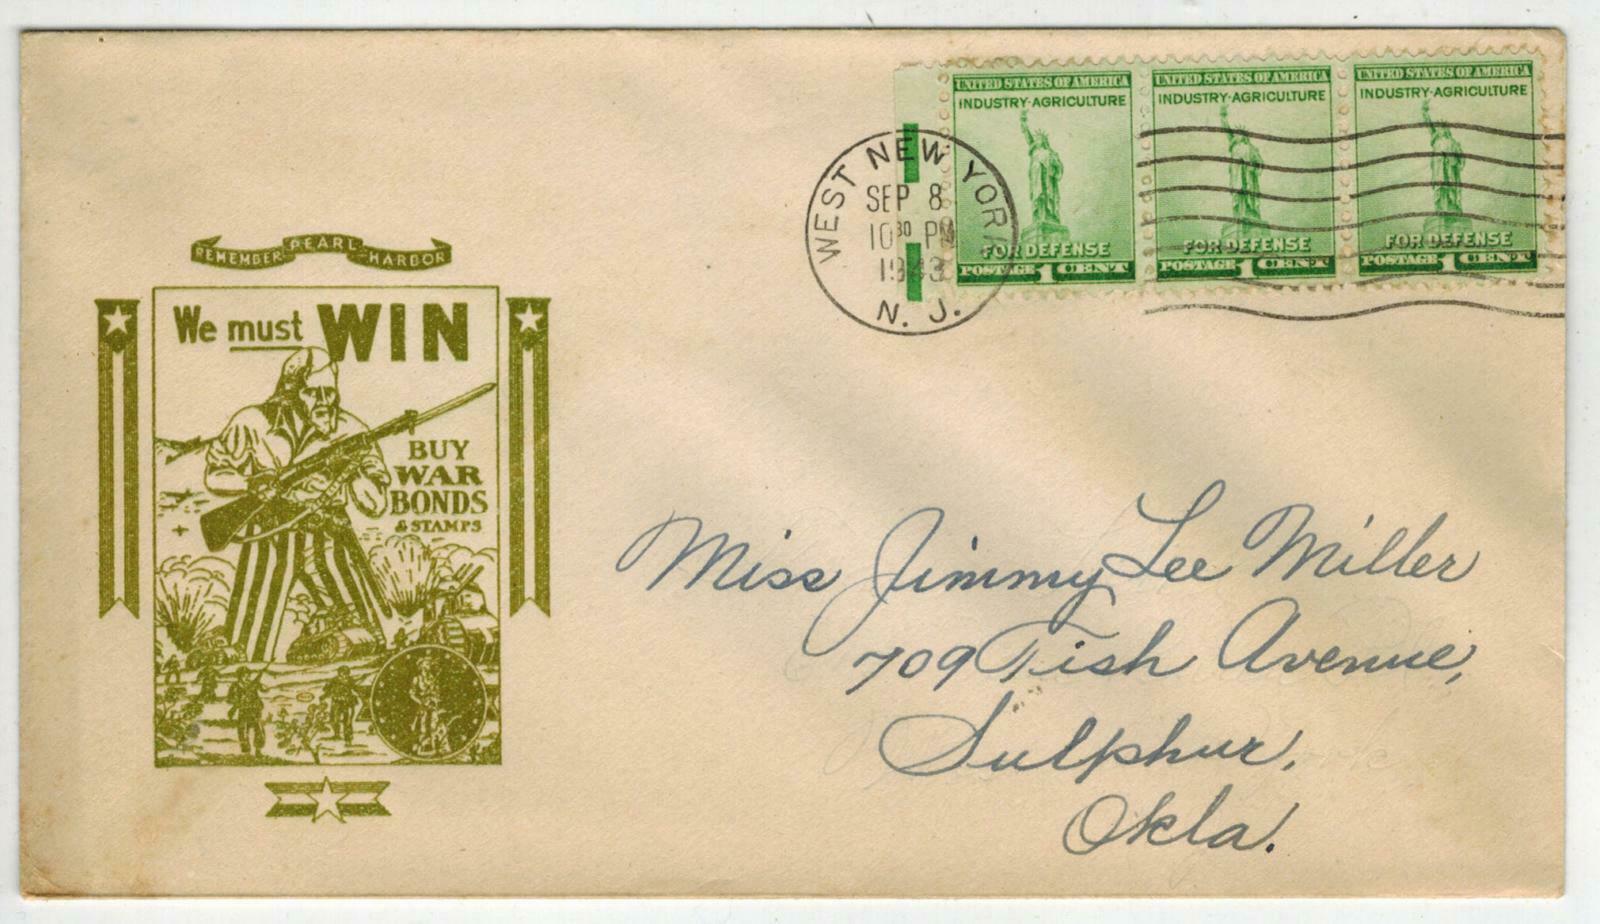 UNITED STATES OF AMERICA
INDUSTRY·AGRICULTURE
FOR DEFENSE
POSTAGE 1 CENT
UNITED STATES OF AMERICA
INDUSTRY·AGRICULTURE
FOR DEFENSE
POSTAGE 1 CENT
UNITED STATES OF AMERICA
INDUSTRY·AGRICULTURE
FOR DEFENSE
POSTAGE 1 CENT
WEST NEW YORK
SEP 8
10 30 PM
1943
N. J.
REMEMBER PEARL HARBOR
We must WIN
BUY
WAR
BONDS
& STAMPS
Miss Jimmy Lee Miller
709 Tish Avenue,
Sulphur,
Okla.